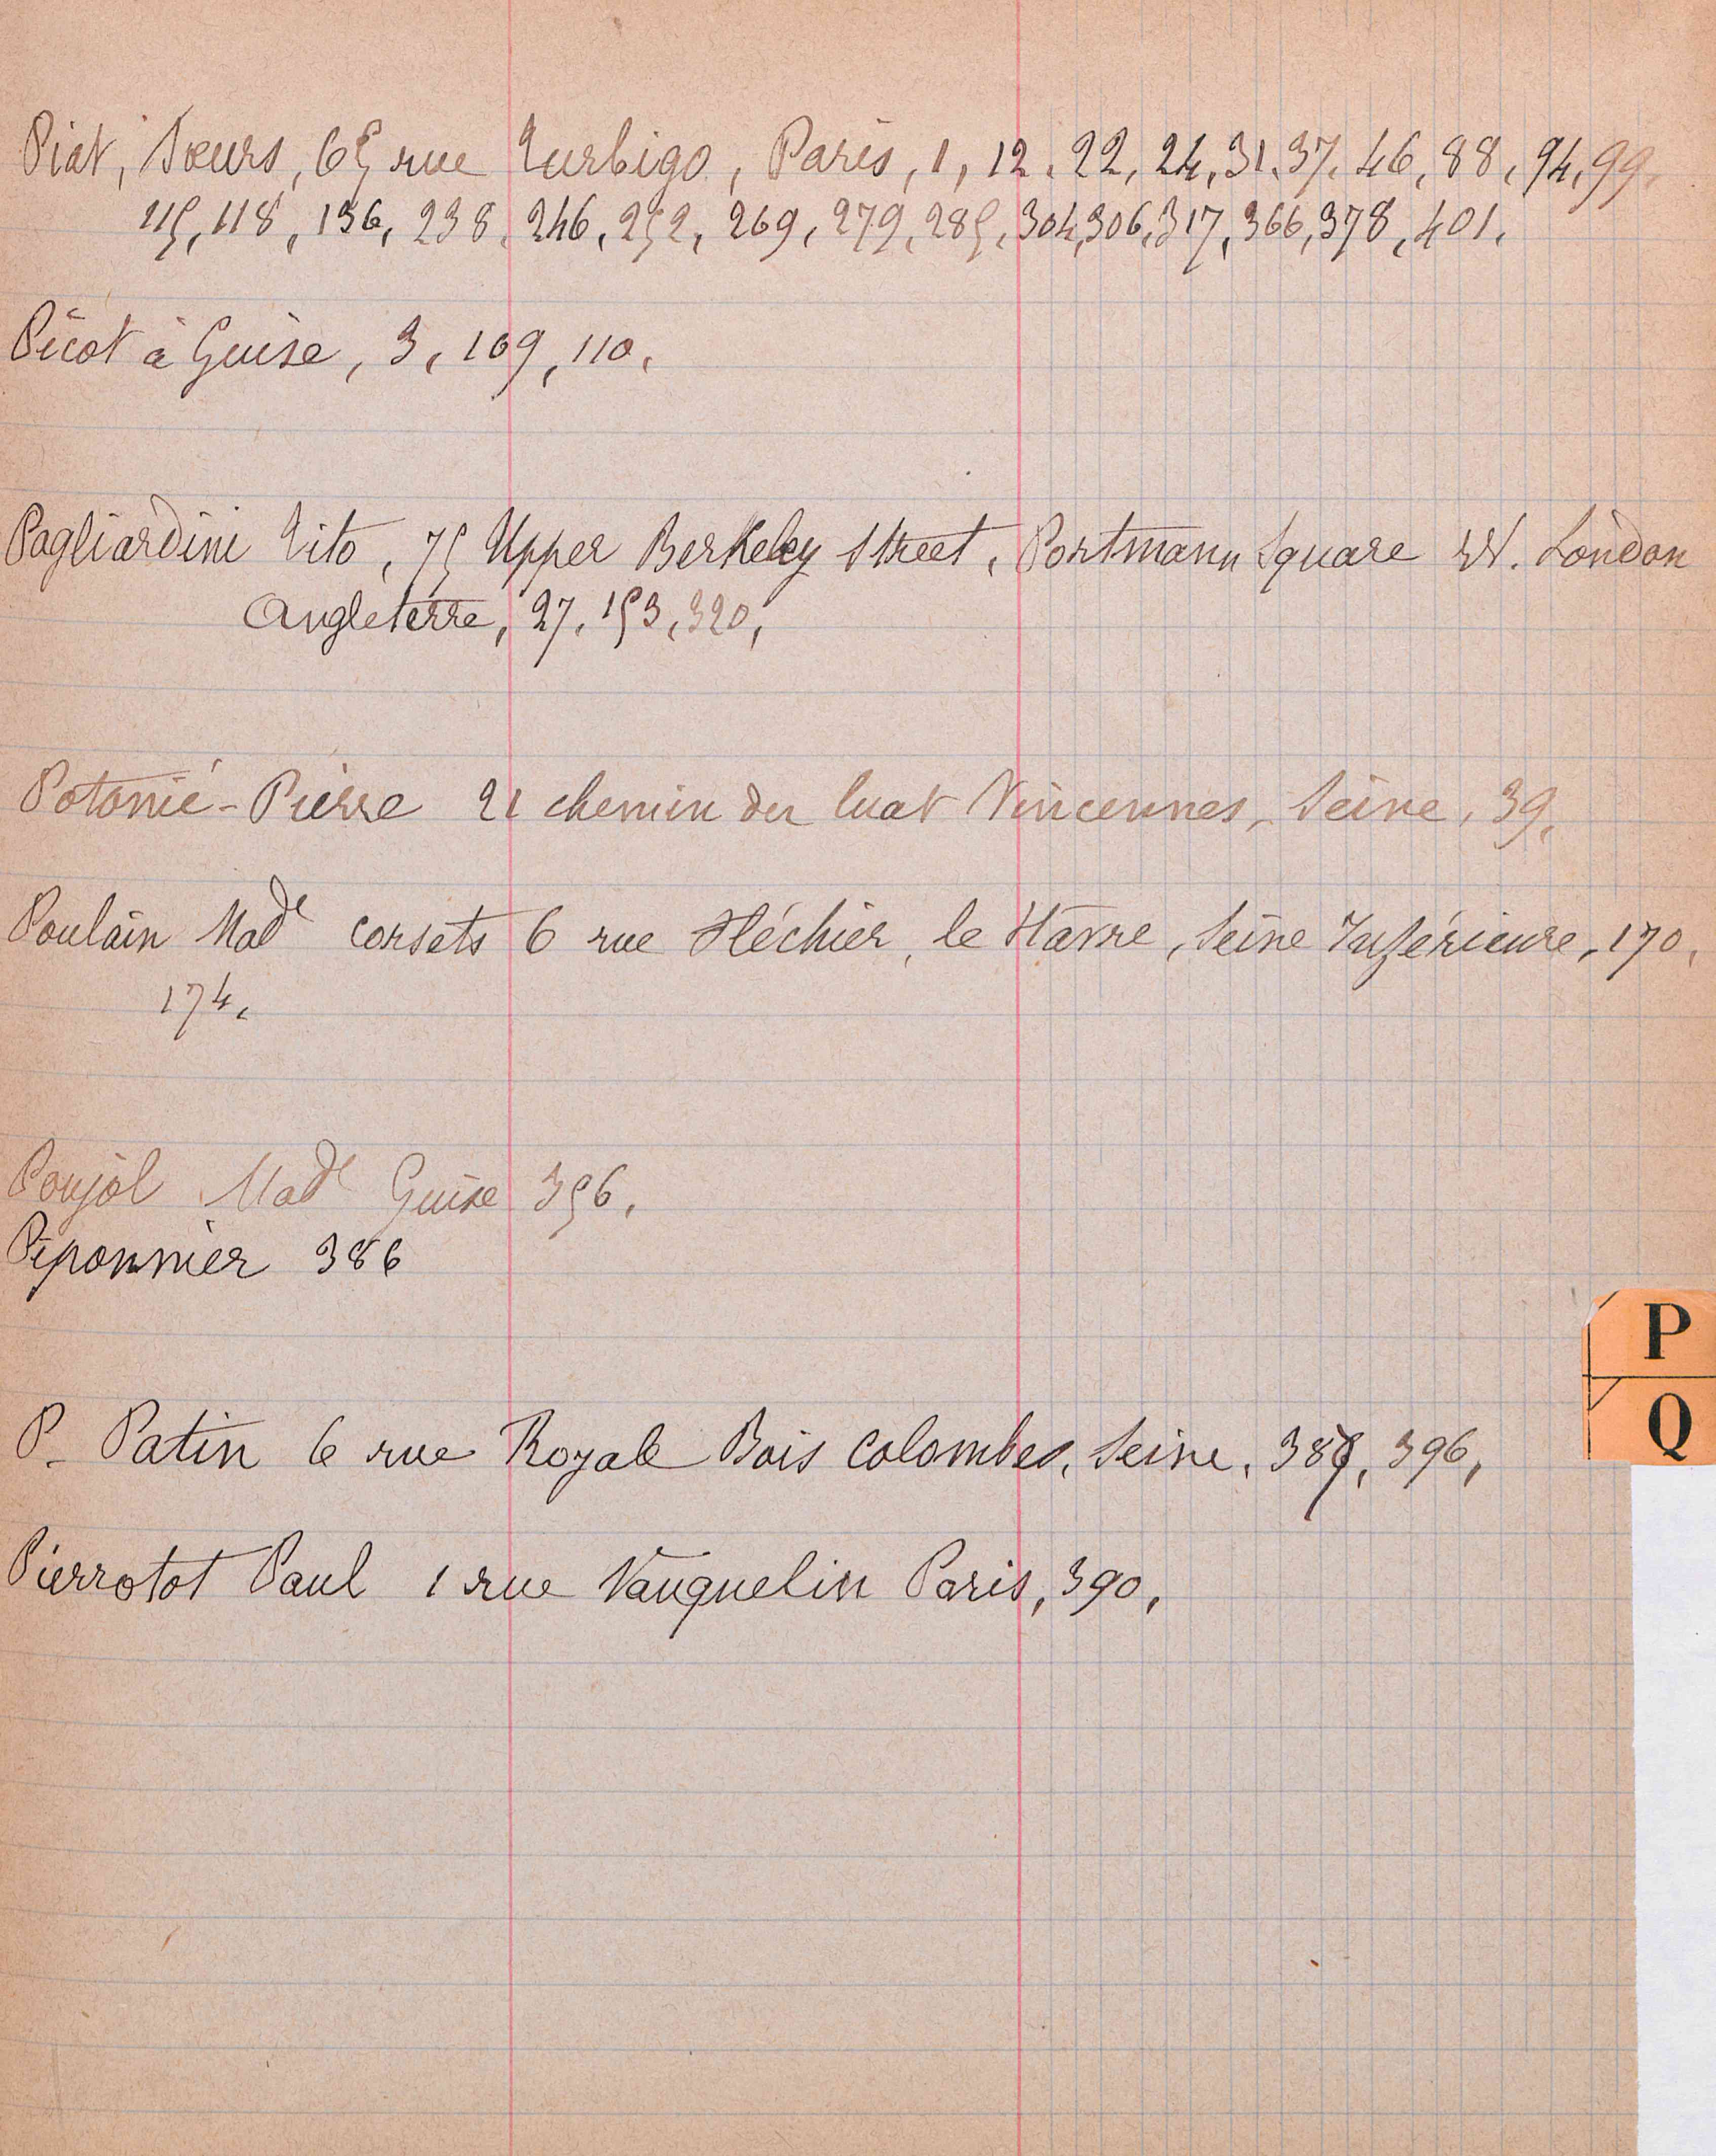 Piat, Sœurs, 65 rue Turbigo, Paris, 1, 12, 22, 24, 31, 37, 46, 88, 94, 99,
115, 118, 136, 238, 246, 252, 269, 279, 285, 304, 306, 317, 366, 378, 401.
Picot à Guise, 3, 109, 110,
Pagliardini Tito, 75 Upper Berkeley Street, Portmann Square W. London
Angleterre, 27, 153, 320,
Potonié-Pierre 21 chemin du Luat Vincennes, Seine, 39,
Poulain Made corsets 6 rue Fléchier, le Havre, Seine Inférieure, 170,
174,
Poujol Made Guise 356,
Piponnier 386
P. Patin 6 rue Royale Bois Colombes, Seine, 387, 396,
Pierrotot Paul 1 rue Vauquelin Paris, 390,
P
Q